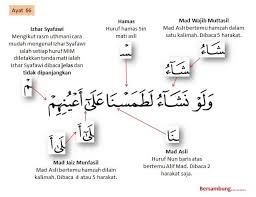 Ayat 66
Izhar Syafawi
Mengikut rasm uthmani cara
mudah mengenal Izhar Syafawi
ialah setiap huruf MIM
diletakkan tanda mati ialah
Izhar Syafawi dibaca jelas dan
tidak dipanjangkan
Hamas
Huruf hamas Sin
mati asli
مْسَ
Mad Wajib Muttasil
Mad Asli bertemu hamzah dalam
satu kalimah. Dibaca 5 harakat.
شَآءُ
شَآءُ
وَلَوْ نَشَآءُ لَطَمَسْنَا عَلَىٰٓ أَعْيُنِهِمْ
لَىٰٓ أَ
نَا
Mad Jaiz Munfasil
Mad Asli bertemu hamzah dilain
kalimah. Dibaca 4 atau 5 harakat.
Mad Asli
Huruf Nun baris atas
bertemu Alif Mad. Dibaca 2
harakat saja.
Bersambung..........